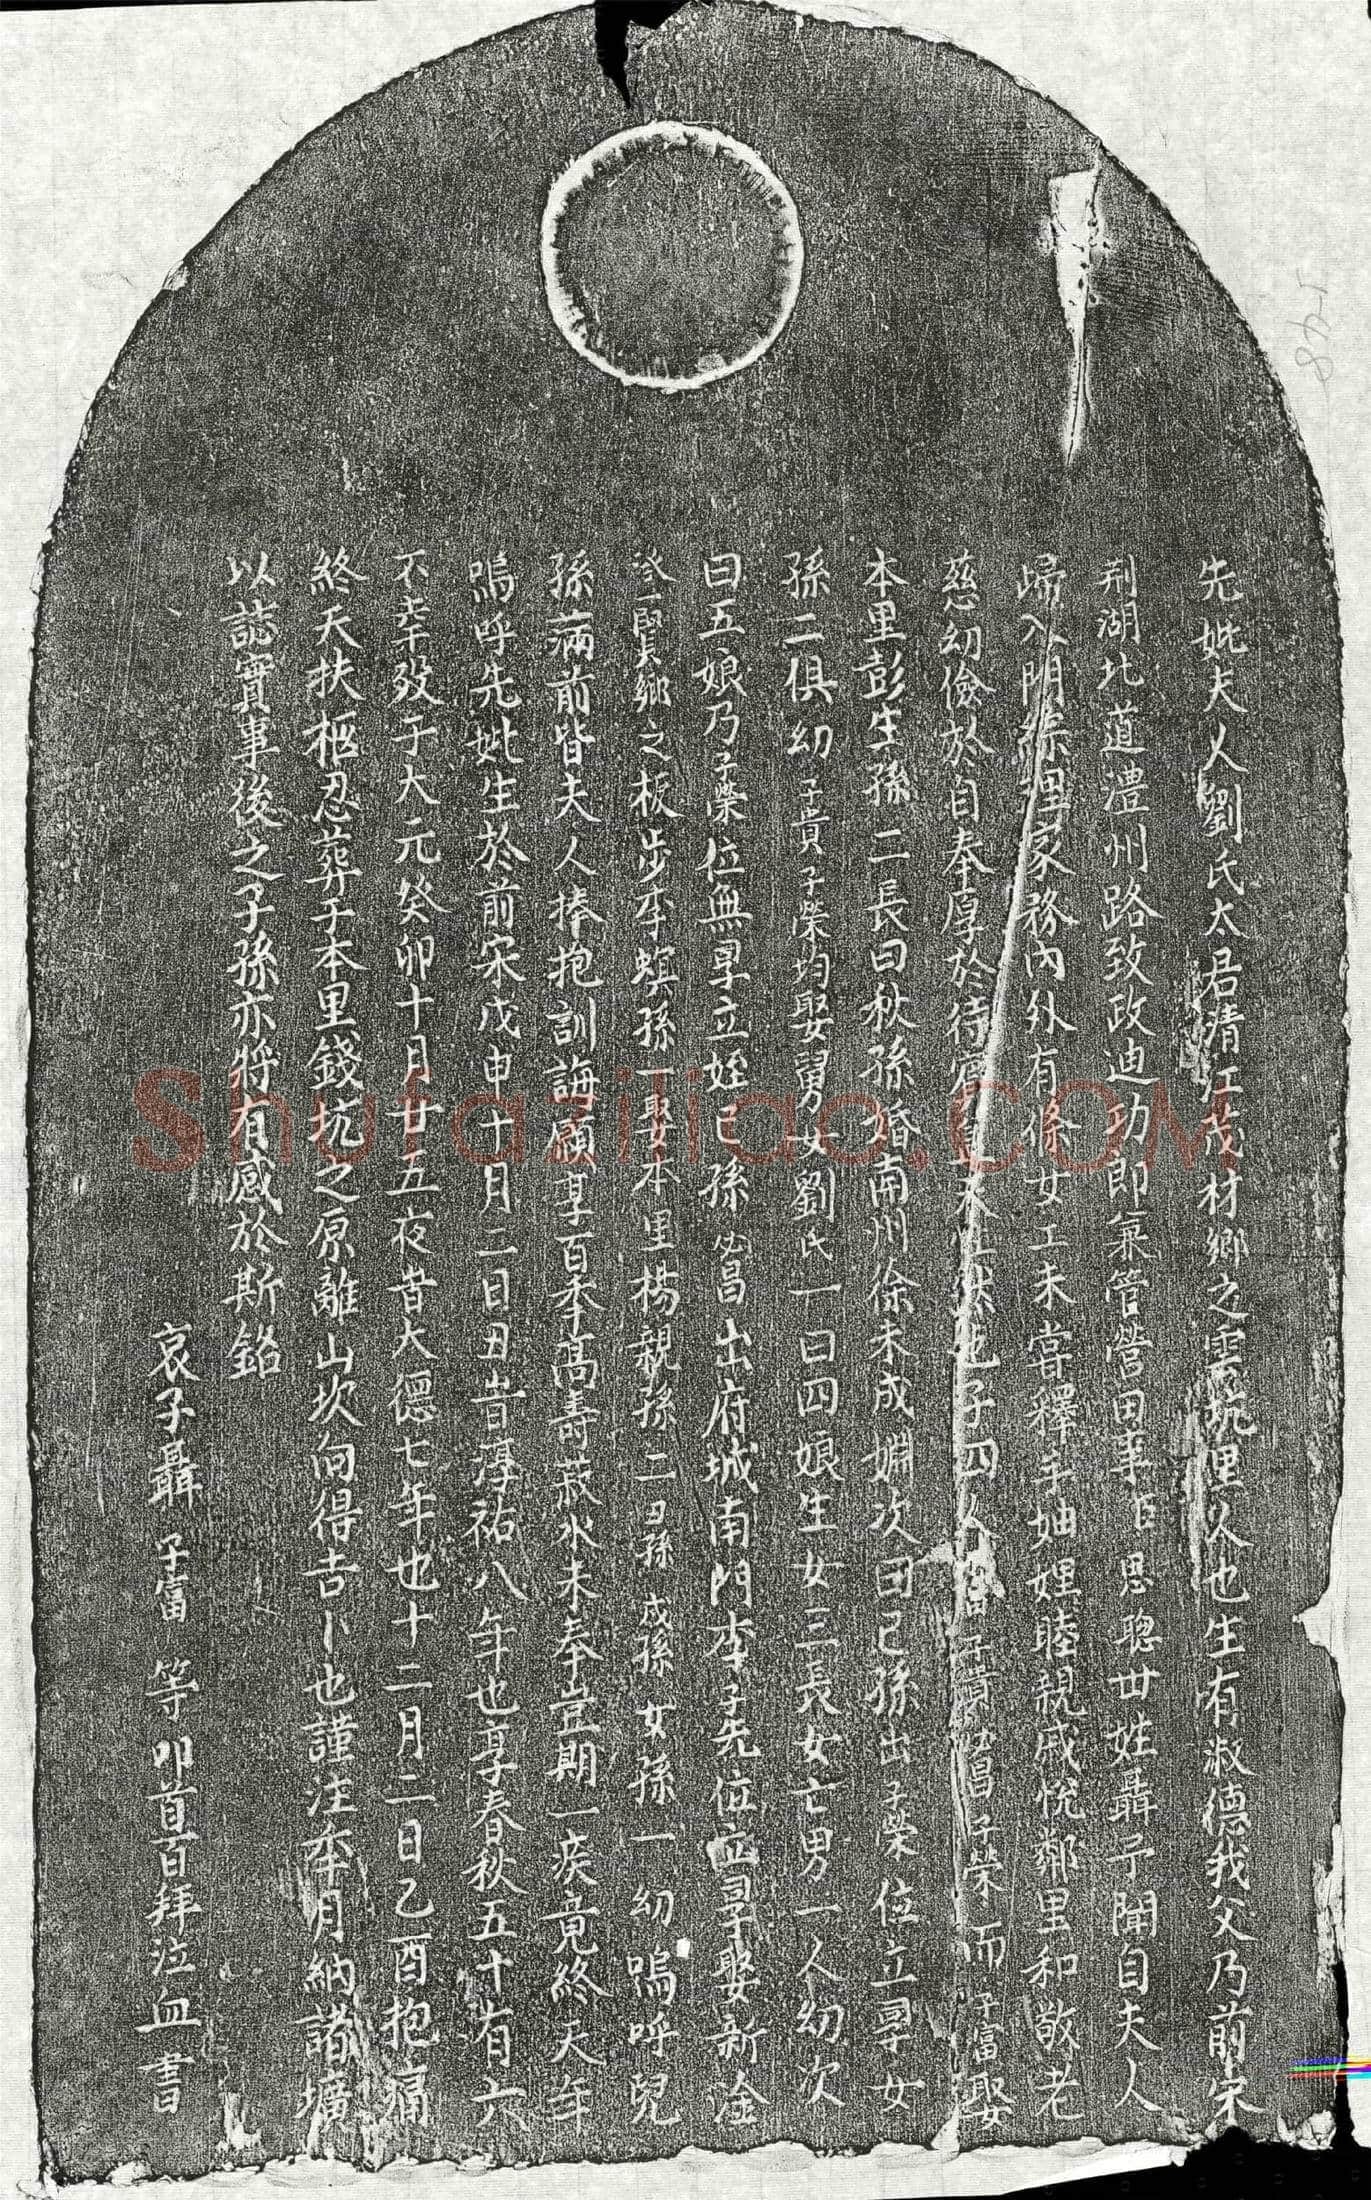 先妣夫人劉氏太君清江茂材鄉之雲坑里人也生有淑德我父乃前宋
荆湖北道澧州路致政迪功郎兼管營田事思聰丗姓聶予聞自夫人
歸入門條理家務內外有條女工未甞釋手妯娌睦親戚悅鄰里和敬老
慈幼儉於自奉厚於待賓子四人子貴昌子榮而子富娶
本里彭生孫二長曰秋孫婚南州徐未成婣次曰己孫出子榮位立孠女
孫二俱幼子貴子榮均娶舅女劉氏一曰四娘生女三長女亡男一人幼次
曰五娘乃子榮位無孠立姪己孫必昌出府城南門李子先位立孠娶新淦
登賢鄉之板步李螟孫一娶本里楊親孫二丑孫戍孫女孫一幼嗚呼兒
孫滿前皆夫人捧抱訓誨願享百季高壽菽水未奉豈期一疾竟終天年
嗚呼先妣生於前宋戊申十月二日丑旹淳祐八年也享春秋五十有六
不幸歿于大元癸卯十月廿五夜昔大德七年也十二月二日乙酉抱痛
終天扶柩忍葬于本里錢坑之原離山坎向得吉卜也謹注本月納諸壙
以誌實事後之子孫亦將有感於斯銘
哀子聶子富等叩首百拜泣血書
Shufaziliao.COM